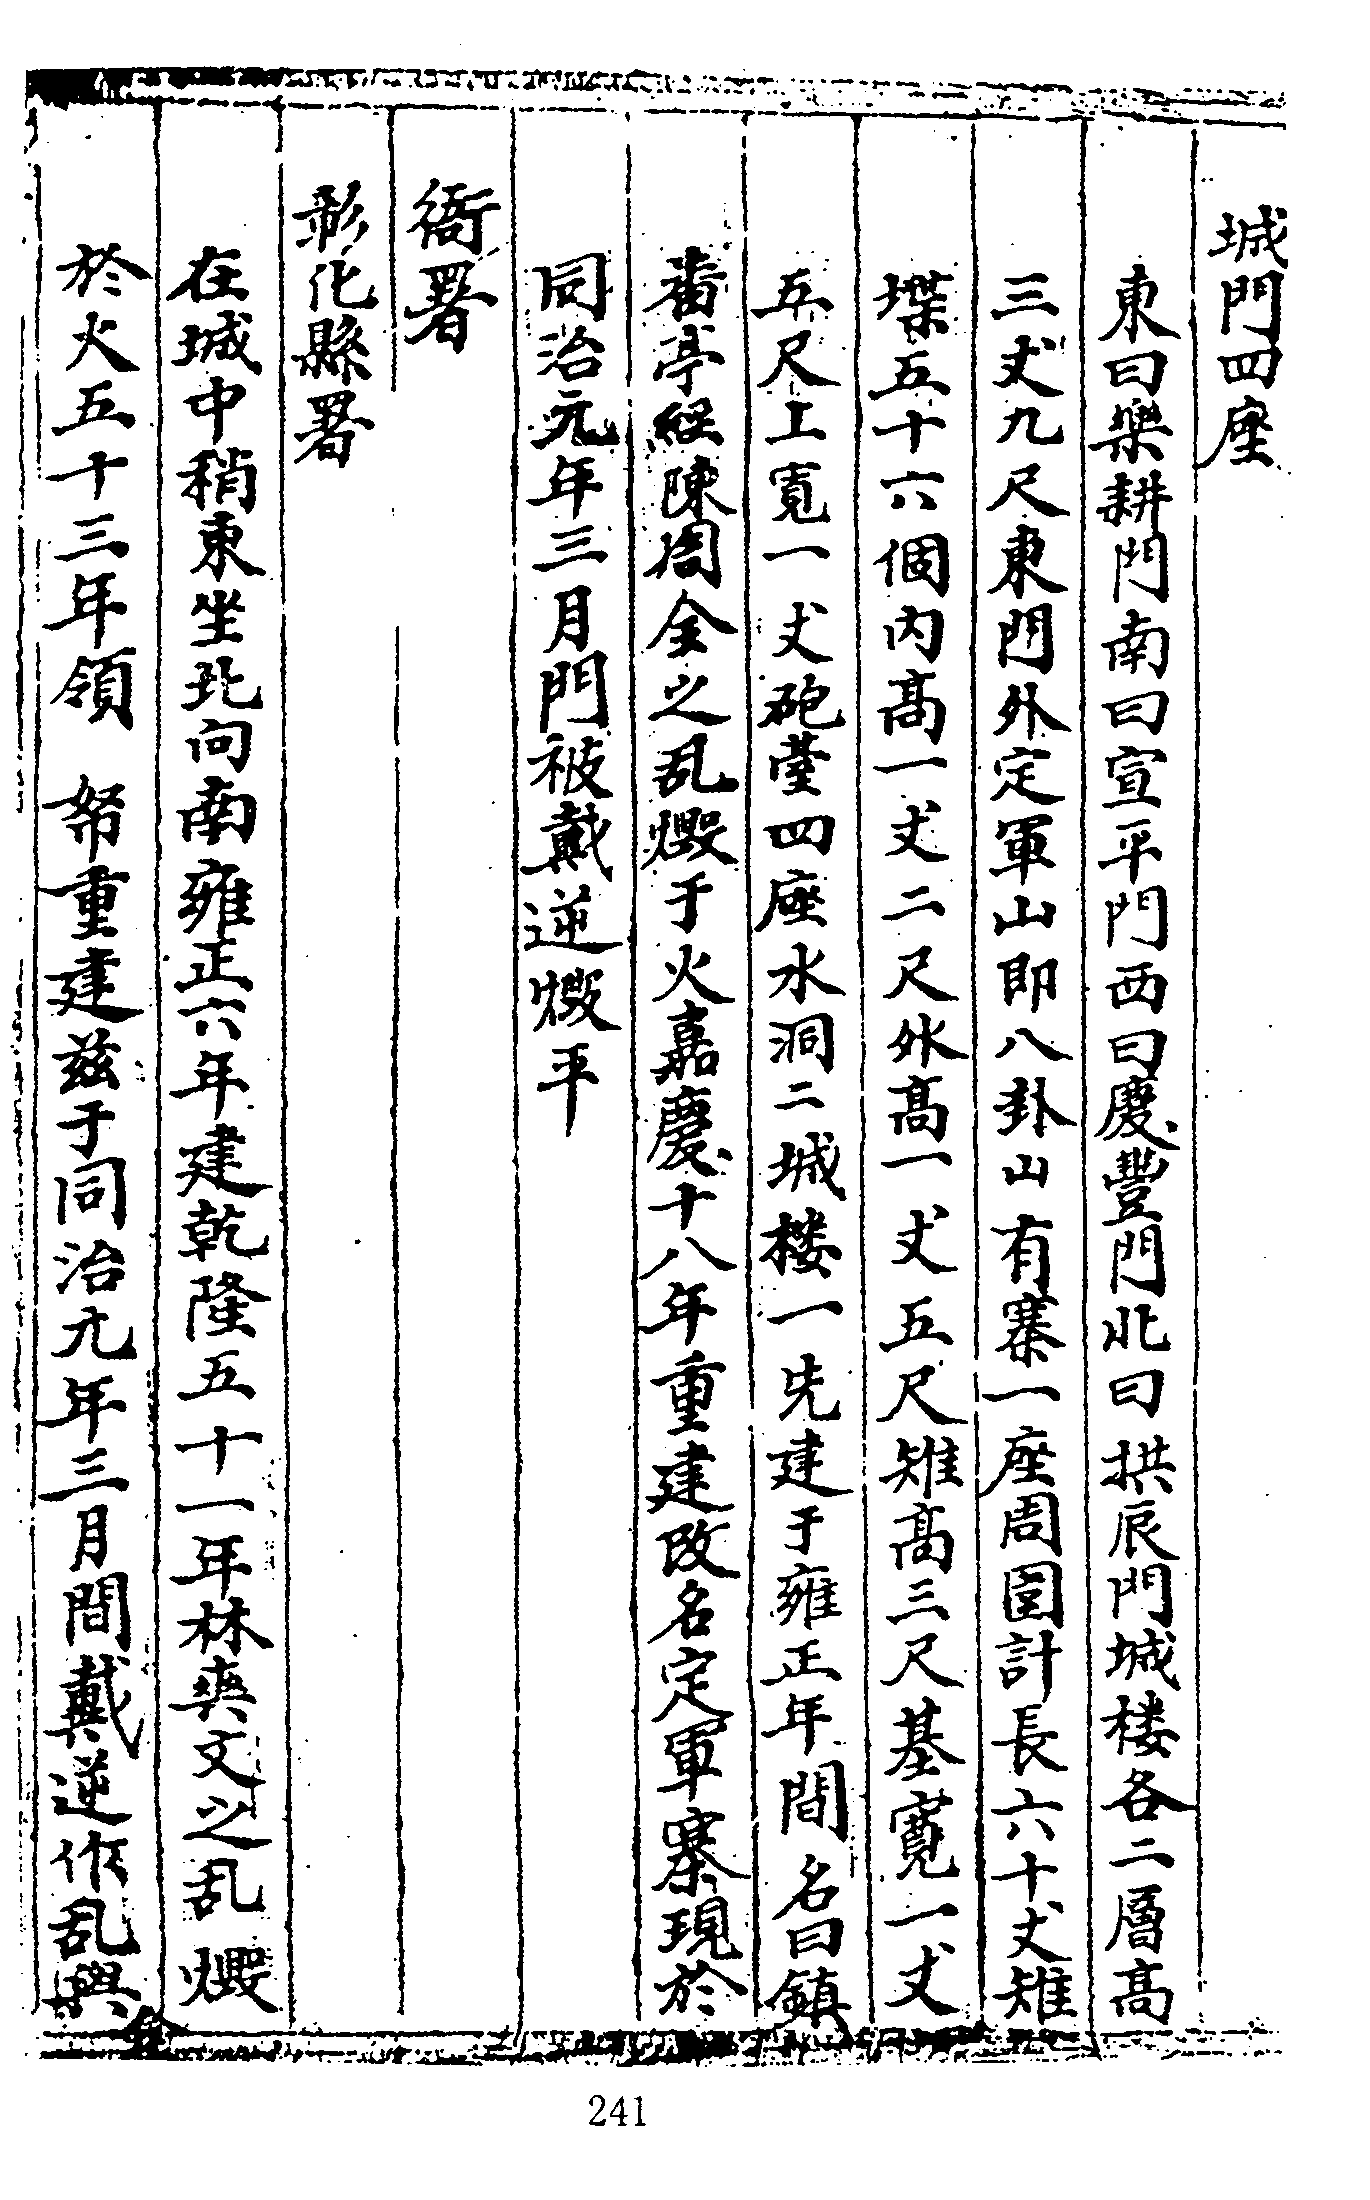 城門四座
東曰樂耕門南曰宣平門西曰慶豐門北曰拱辰門城楼各二層高
三丈九尺東門外定軍山即八卦山有寨一座周圍計長六十丈雉
堞五十六個内高一丈二尺外高一丈五尺雉高三尺基寬一丈
五尺上寬一丈砲臺四座水洞二城楼一先建于雍正年間名曰鎮
番亭經陳周全之乱燬于火嘉慶十八年重建改名定軍寨現於
同治元年三月門被戴逆燬平
衙署
彰化縣署
在城中稍東坐北向南雍正六年建乾隆五十一年林爽文之乱燬
於火五十三年領 帑重建兹于同治元年三月間戴逆作乱與
241